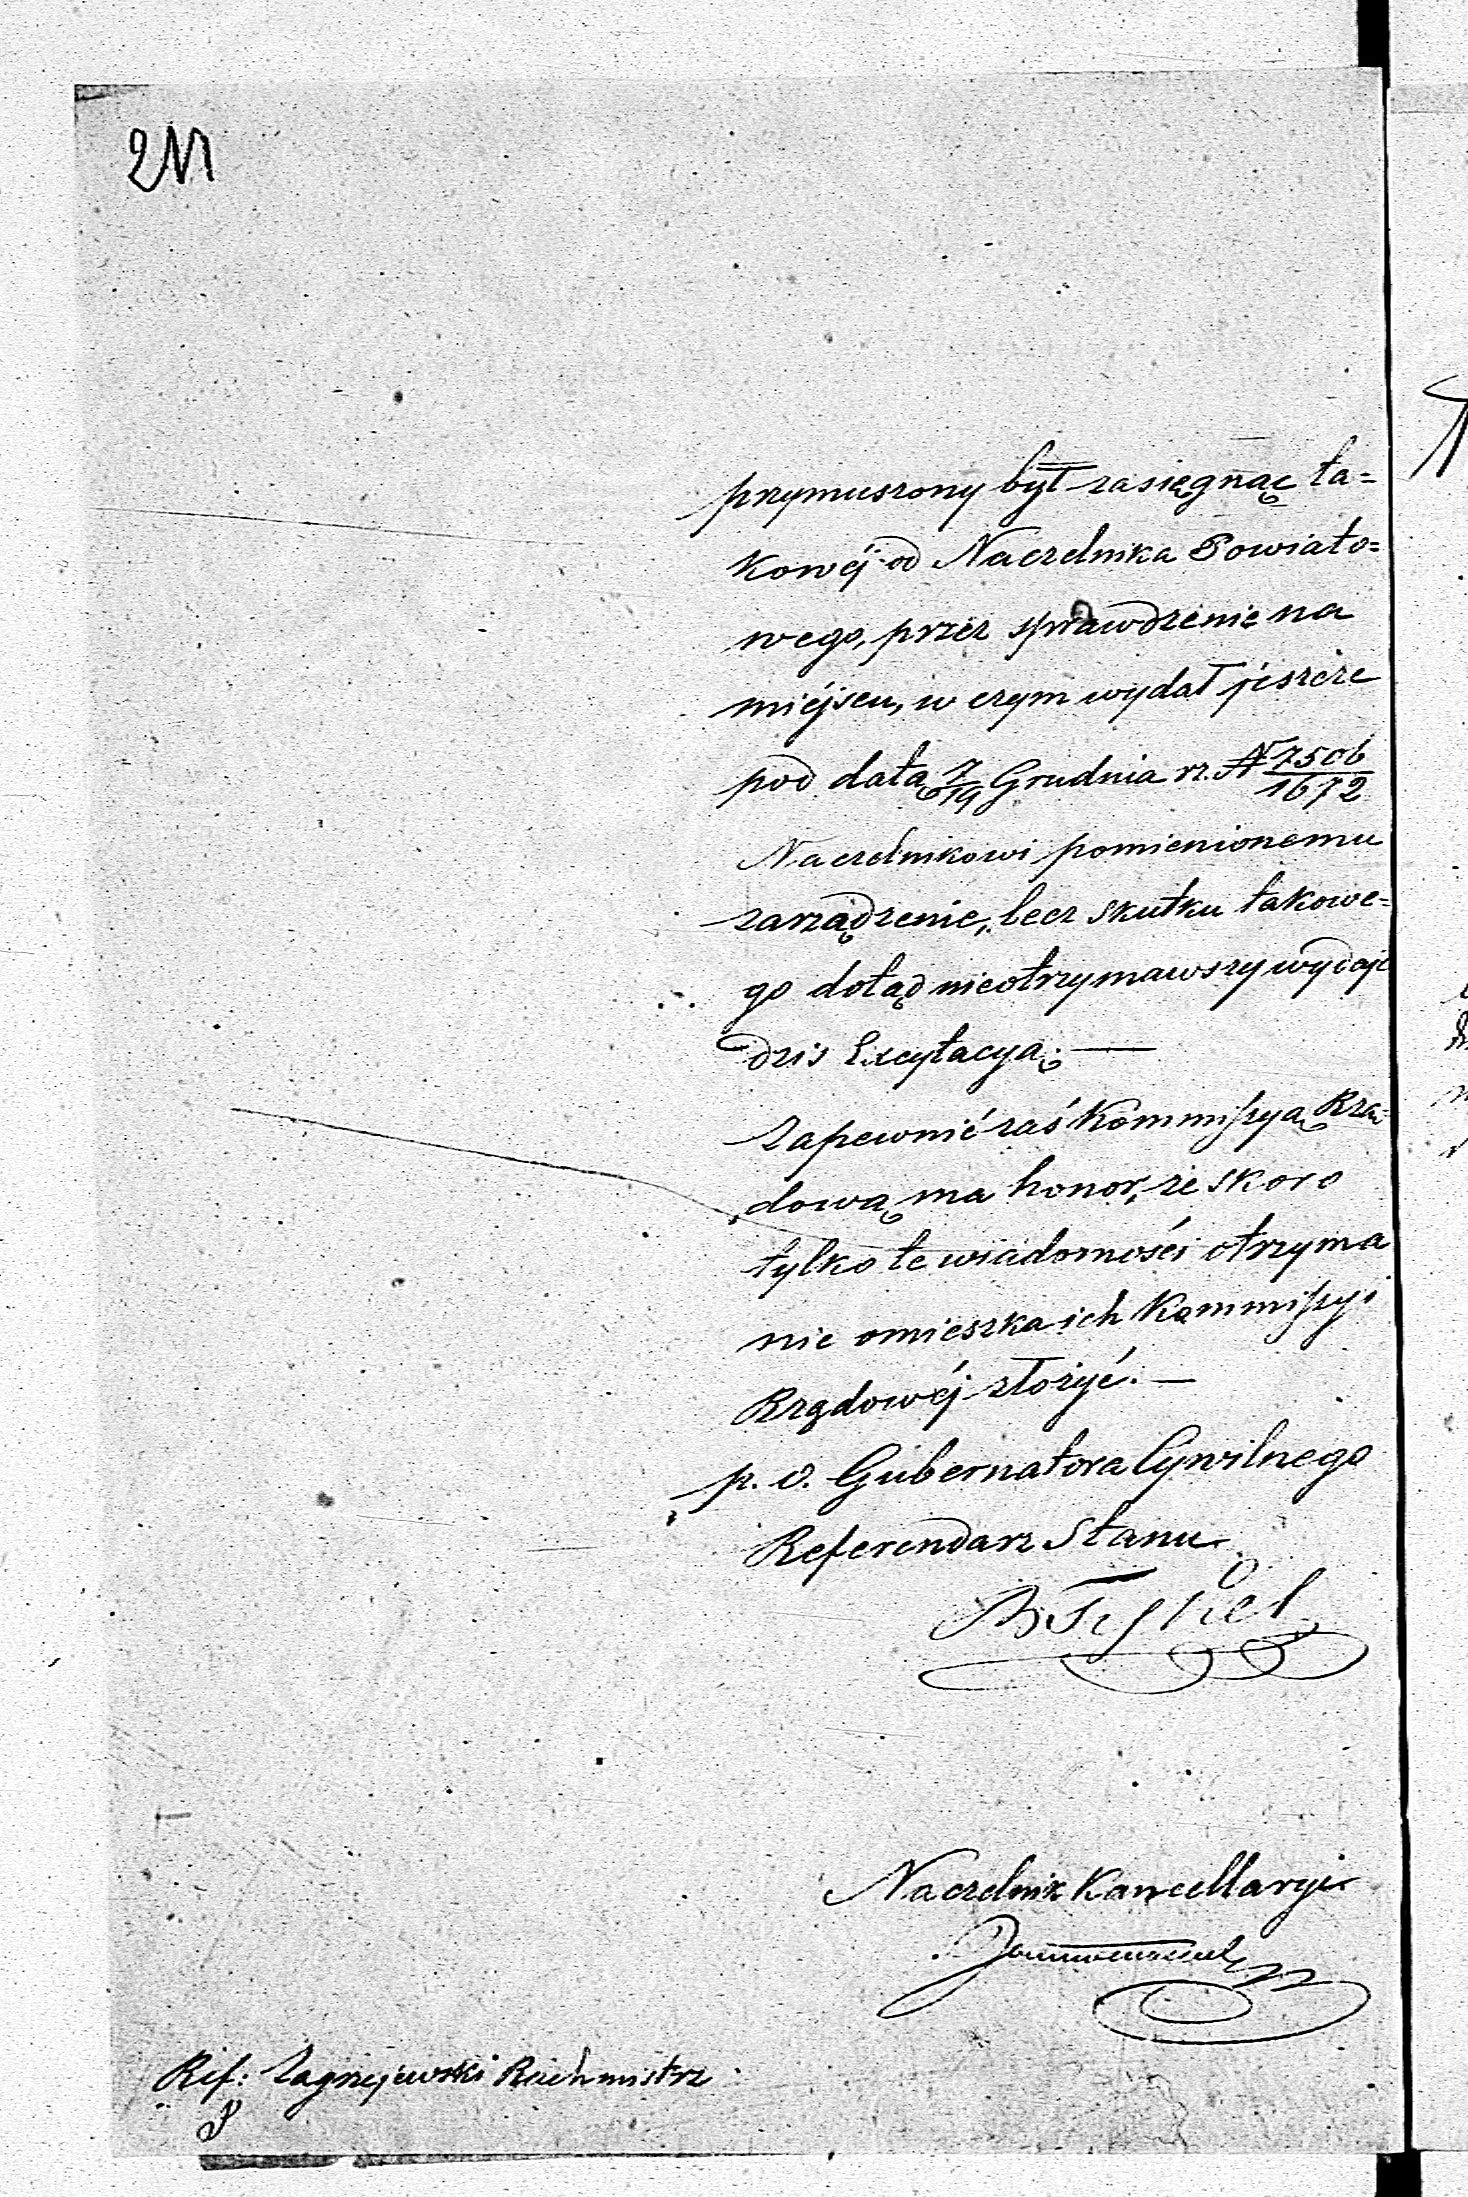 211
przymuszony był zasięgnąć ta=
kowéj od Naczelnika Powiato=
wego, przez sprawdzenie na
miéjscu, w czym wydał jészcze
pod datą 7/19 Grudnia rz. N 7506/1672
Naczelnikowi pomienionemu
zarządzenie, lecz skutku takowe=
go dotąd nieotrzymawszy wydaje
dziś Excytacyą. —
Zapewnić zaś Kommissyą Rzą=
dową ma honor, że skoro
tylko te wiadomości otrzyma
nie omieszka ich Kommissyi
Rządowéj złożyć. —
p. o. Gubernatora Cywilnego
Referendarz Stanu
Naczelnik Kancellaryi
Ref: Zagrzejewski Rachmistrz